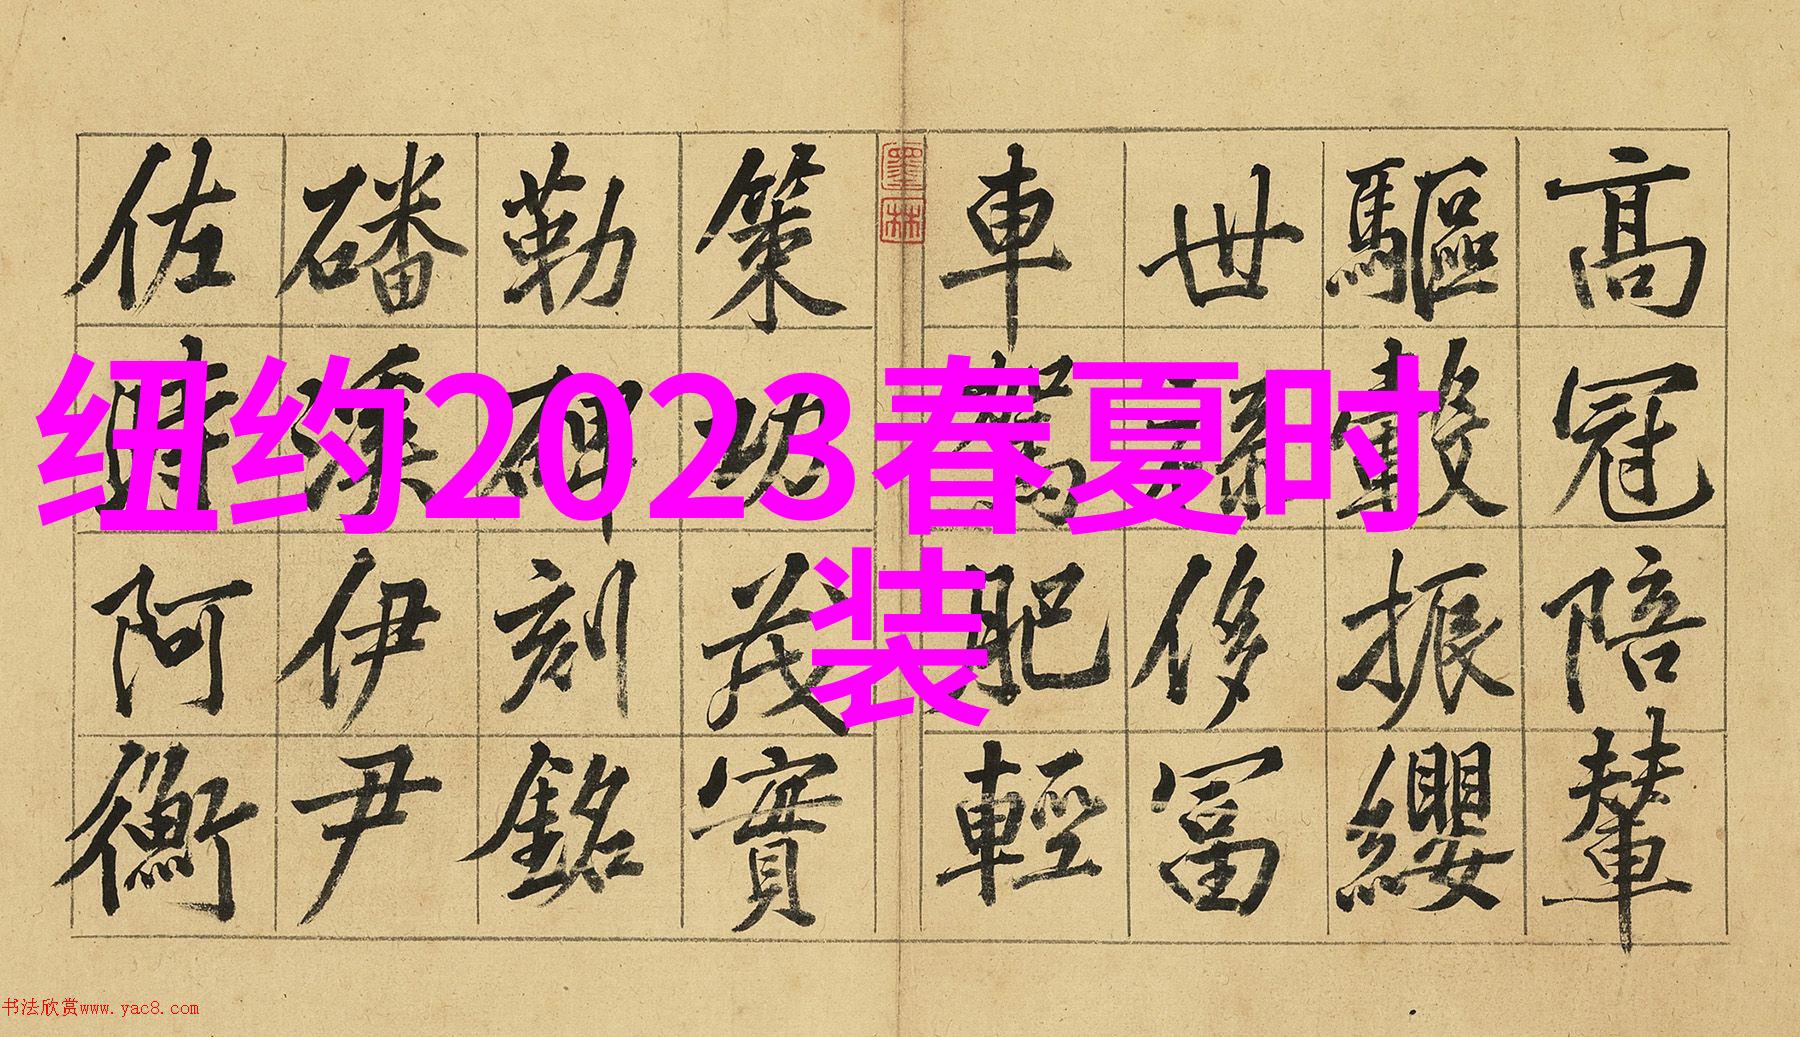 高冠陪輦
驅轂振纓
世祿侈富
車駕肥輕
墨林
策功茂實
勒碑刻銘
磻溪伊尹
佐時阿衡
纽约2023春夏时
装
书法欣赏www.yac8.com